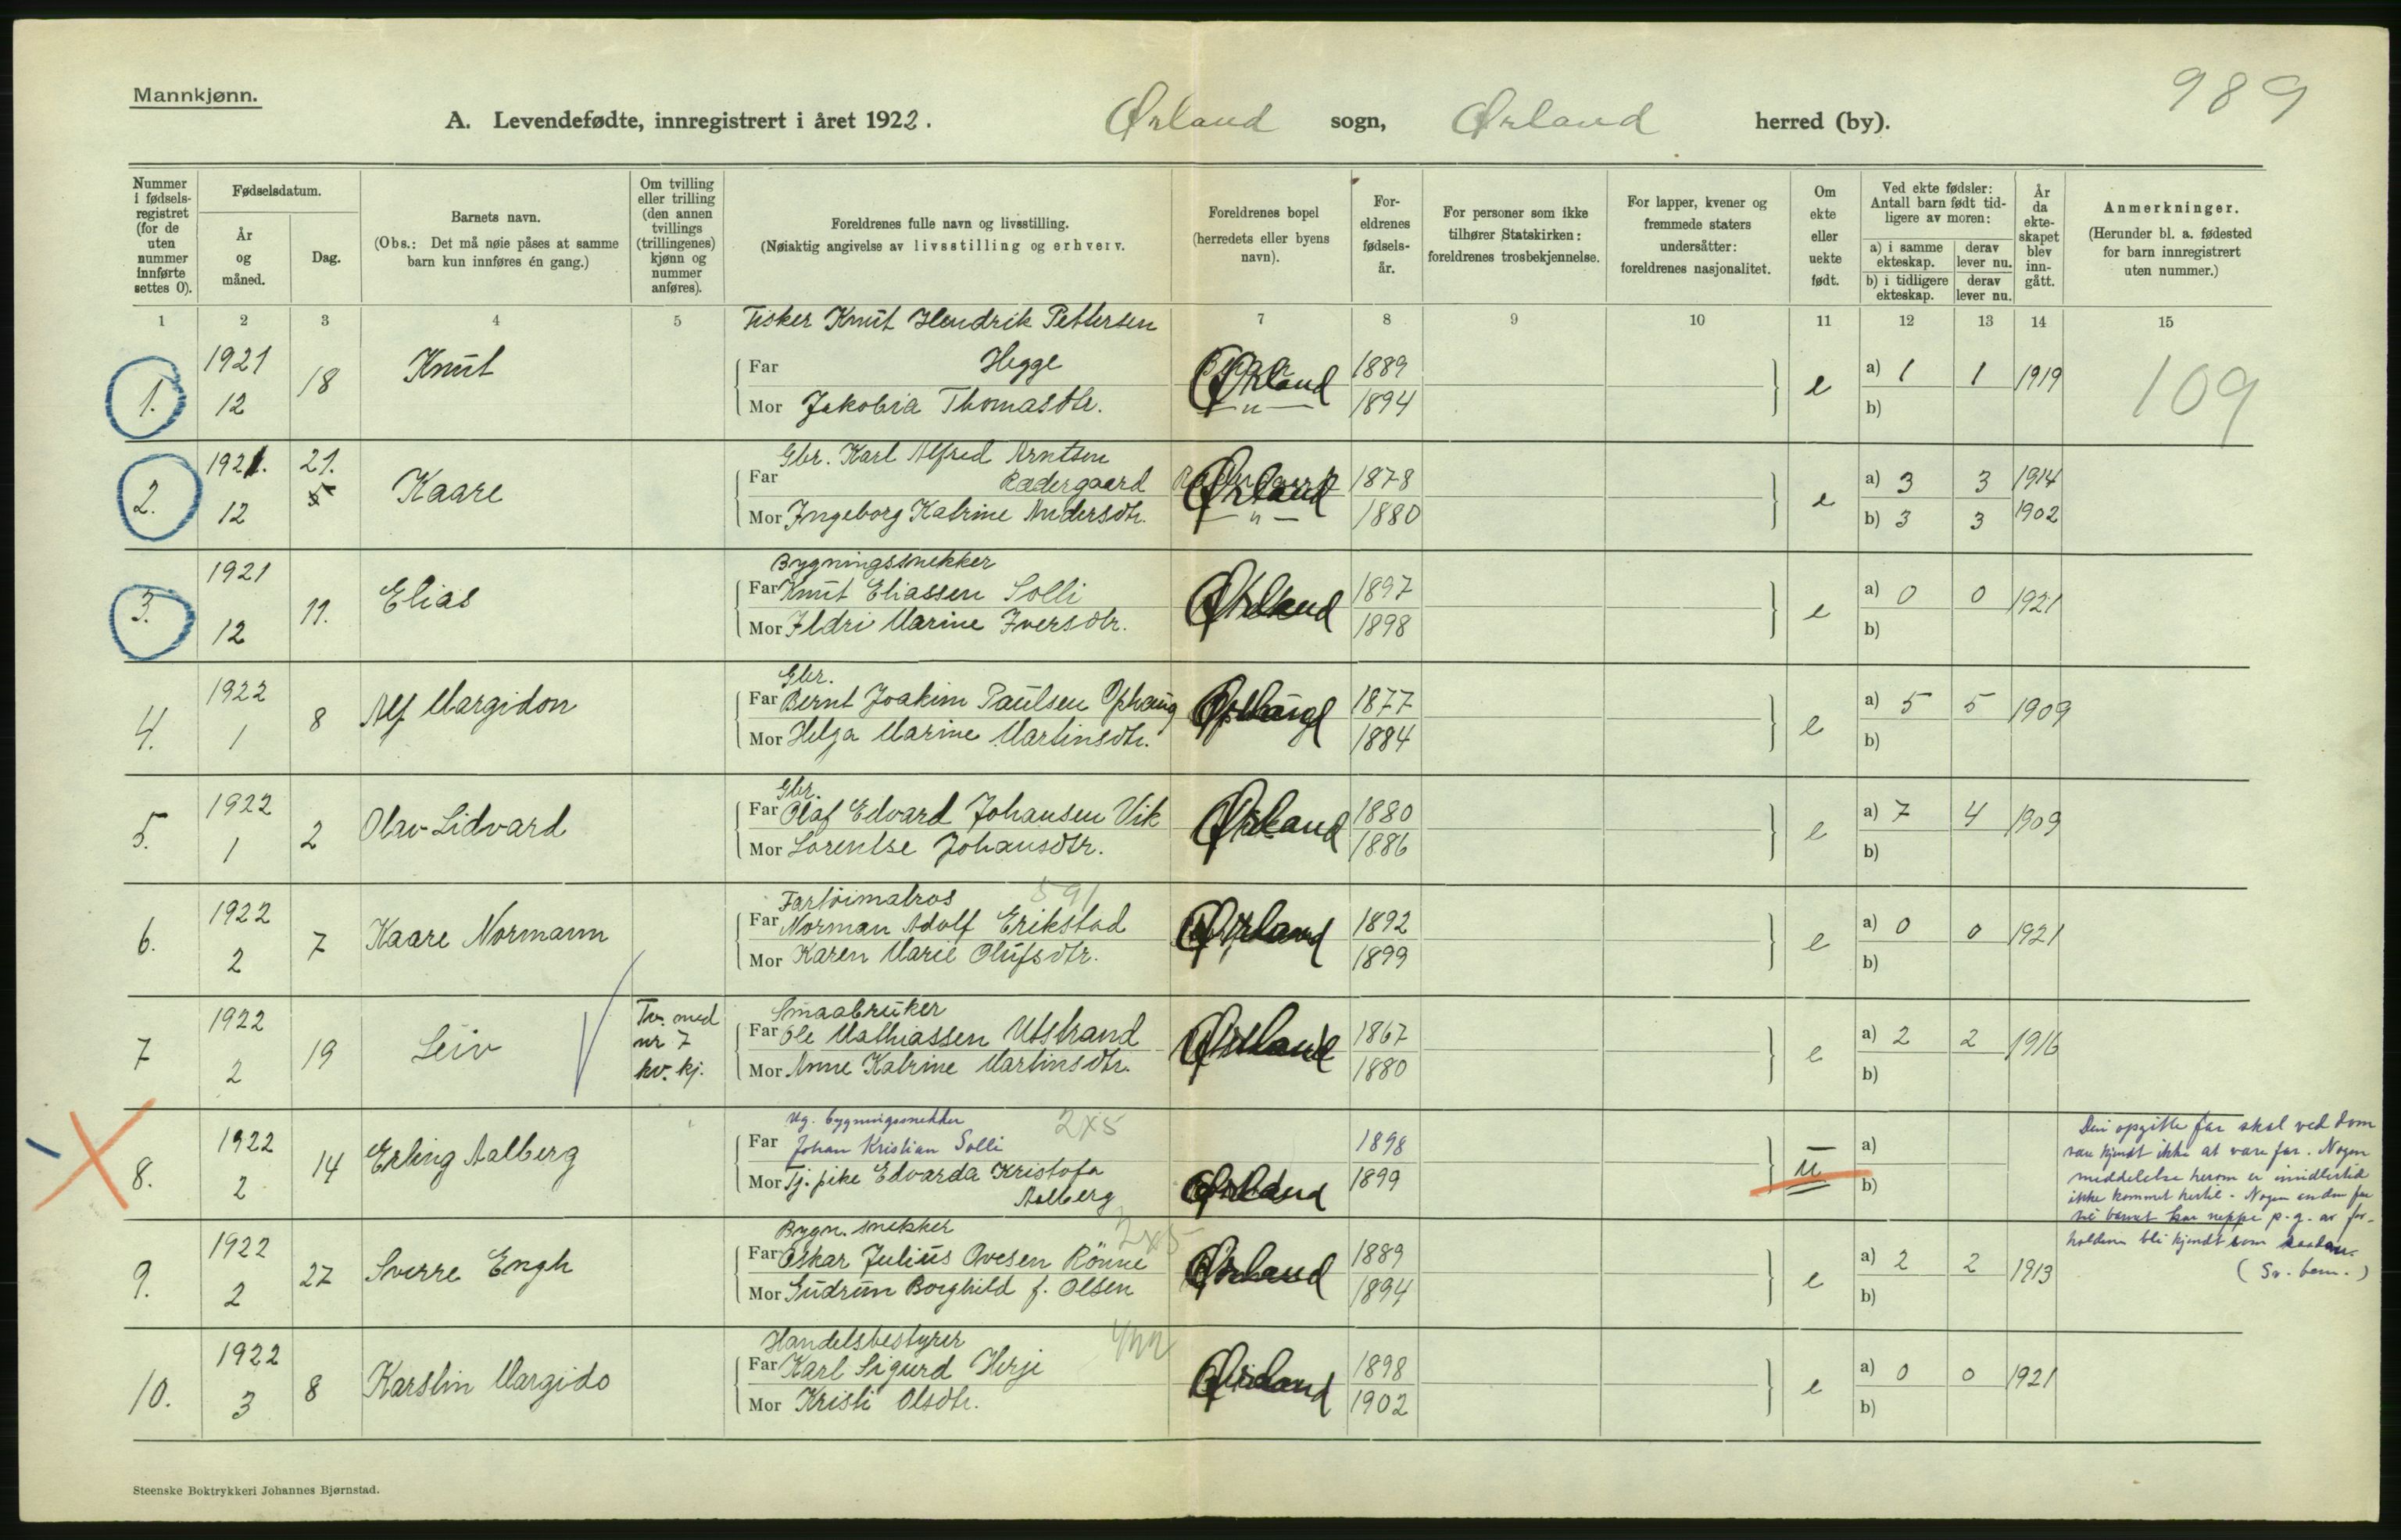 Mannkjønn.
989
A. Levendefødte, innregistrert i året 1922. Ørland sogn, Ørland herred (by).
Nummer i fødsels-registret (for de uten nummer innførte settes 0).
Fødselsdatum.
År og måned.
Dag.
Barnets navn.
(Obs.: Det må nøie påses at samme barn kun innføres én gang.)
Om tvilling eller trilling (den annen tvillings (trillingenes) kjønn og nummer anføres).
Foreldrenes fulle navn og livsstilling.
(Nøiaktig angivelse av livsstilling og erhverv.
Foreldrenes bopel (herredets eller byens navn).
For-eldrenes fødsels-år.
For personer som ikke tilhører Statskirken: foreldrenes trosbekjennelse.
For lapper, kvener og fremmede staters undersåtter: foreldrenes nasjonalitet.
Om ekte eller uekte født.
Ved ekte fødsler: Antall barn født tid-ligere av moren:
a) i samme ekteskap. derav lever nu.
b) i tidligere ekteskap. derav lever nu.
År da ekte-skapet blev inn-gått.
Anmerkninger.
(Herunder bl. a. fødested for barn innregistrert uten nummer.)
1 2 3 4 5 7 8 9 10 11 12 13 14 15
Fisker Knut Hendrik Pettersen
1. 1921 12 18 Knut Far Hegge Ørland 1889 e a) 1 1 1919 109
Mor Jakobia Thomasdtr. — " — 1894 b)
Gbr. Karl Alfred Arntsen
2. 1921. 12 21. Kaare Far Rædergaard Ørland 1878 e a) 3 3 1914
Mor Ingeborg Katrine Andersdtr. — " — 1880 b) 3 3 1902
Bygningssnekker
3. 1921 12 11. Elias Far Knut Eliassen Solli Ørland 1897 e a) 0 0 1921
Mor Ildri Marine Iversdtr. 1898 b)
Gbr.
4. 1922 1 8 Alf Margidon Far Bernt Joakim Paulsen Ophaug 1877 e a) 5 5 1909
Mor Helga Marine Martinsdtr. 1884 b)
Gbr.
5. 1922 1 2 Olav Lidvard Far Olaf Edvard Johansen Vik Ørland 1880 e a) 7 4 1909
Mor Lorentse Johansdtr. 1886 b)
Fartöimatros 591
6. 1922 2 7 Kaare Normann Far Norman Adolf Erikstad Ørland 1892 e a) 0 0 1921
Mor Karen Marie Olufsdtr. 1899 b)
Smaabruker
7 1922 2 19 Leiv Tv. med nr 7 kv. kj. Far Ole Mathiassen Utstrand Ørland 1867 e a) 2 2 1916
Mor Anne Katrine Martinsdtr. 1880 b)
Ug. bygningssnekker 2x5
8. 1922 2 14 Erling Aalberg Far Johan Kristian Solli 1898 u a)
Mor Tj. pike Edvarda Kristofa Aalberg Ørland 1899 b)
Den opgitte far skal ved dom
være kjendt ikke at være far. Nogen
meddelelse herom er imidlertid
ikke kommet hertil. Nogen anden far
til barnet kan neppe p. g. av for-
holdene bli kjendt som
(Sr. bem.)
Bygn. snekker 2x5
9. 1922 2 27 Sverre Engh Far Oskar Julius Ovesen Rönne Ørland 1889 e a) 2 2 1913
Mor Gudrun Borghild f. Olsen 1894 b)
Handelsbestyrer
10. 1922 3 8 Karstin Margido Far Karl Sigurd Herje Ørland 1898 e a) 0 0 1921
Mor Kristi Olsdtr. 1902 b)
Steenske Boktrykkeri Johannes Bjørnstad.